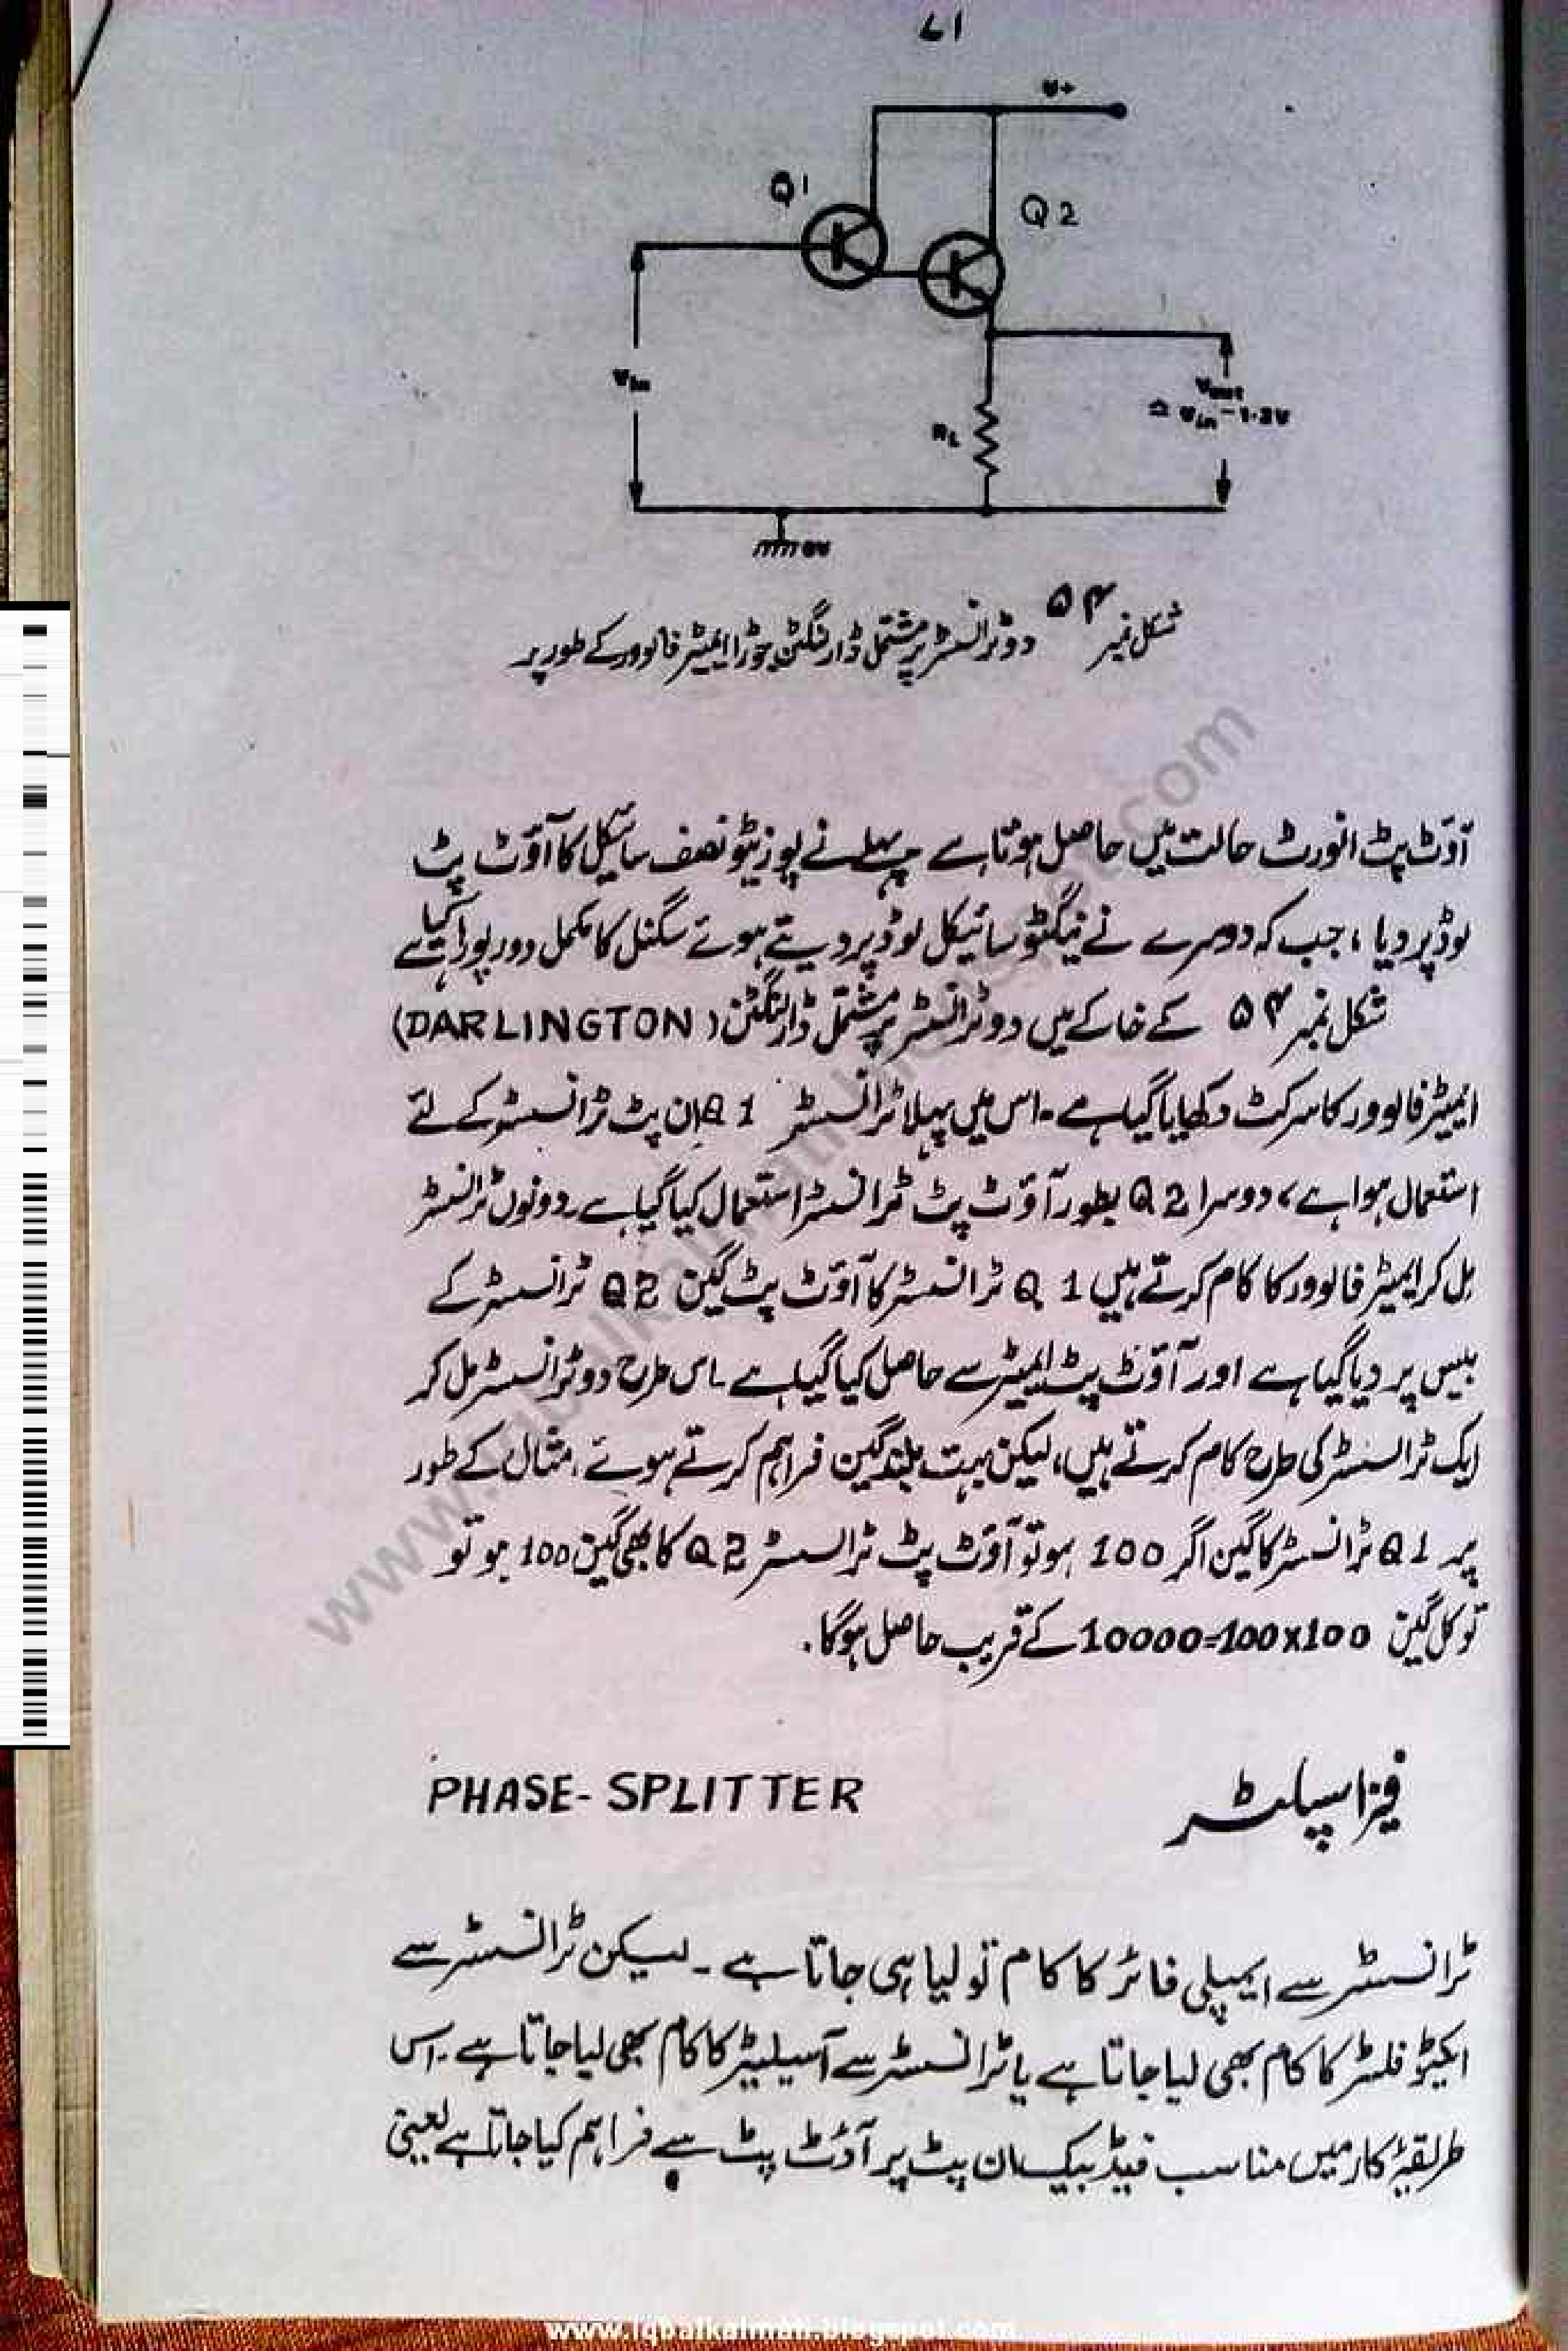 ۷۱
V+
Q1
Q2
Vin
Vout
≏ Vin-1.2V
RL
0V
شکل نمبر ۵۴ دو ٹرانسسٹر پر مشتمل ڈارلنگٹن جوڑا ایمیٹر فالوور کے طور پر
آؤٹ پٹ انورٹ حالت میں حاصل ہوتا ہے پہلے نے پوزیٹو نصف سائیکل کا آؤٹ پٹ
لوڈ پر دیا ، جب کہ دوسرے نے نیگٹو سائیکل لوڈ پر دیتے ہوئے سگنل کا مکمل دور پورا کیا ہے
شکل نمبر ۵۴ کے خاکے میں دو ٹرانسسٹر پر مشتمل ڈارلنگٹن (DARLINGTON)
ایمیٹر فالوور کا سرکٹ دکھایا گیا ہے ۔ اس میں پہلا ٹرانسسٹر Q1 ان پٹ ٹرانسسٹر کے لئے
استعمال ہوا ہے ، دوسرا Q2 بطور آؤٹ پٹ ٹرانسسٹر استعمال کیا گیا ہے ۔ دونوں ٹرانسسٹر
مل کر ایمیٹر فالوور کا کام کرتے ہیں Q1 ٹرانسسٹر کا آؤٹ پٹ گین Q2 ٹرانسسٹر کے
بیس پر دیا گیا ہے اور آؤٹ پٹ ایمیٹر سے حاصل کیا گیا ہے ۔ اس طرح دو ٹرانسسٹر مل کر
ایک ٹرانسسٹر کی طرح کام کرتے ہیں ، لیکن بہت بلند گین فراہم کرتے ہوئے ۔ مثال کے طور
پر Q1 ٹرانسسٹر کا گین اگر 100 ہو تو آؤٹ پٹ ٹرانسسٹر Q2 کا بھی گین 100 ہو تو
تو کل گین 100x100=10000 کے قریب حاصل ہوگا .
فیز اسپلٹر PHASE-SPLITTER
ٹرانسسٹر سے ایمپلی فائر کا کام تو لیا ہی جاتا ہے ۔ لیکن ٹرانسسٹر سے
ایکٹو فلٹر کا کام بھی لیا جاتا ہے یا ٹرانسسٹر سے آسیلیٹر کا کام بھی لیا جاتا ہے ۔ اس
طریقۂ کار میں مناسب فیڈ بیک ان پٹ پر آؤٹ پٹ سے فراہم کیا جاتا ہے یعنی
www.iqbalkalmati.blogspot.com
www.iqbalkalmati.blogspot.com